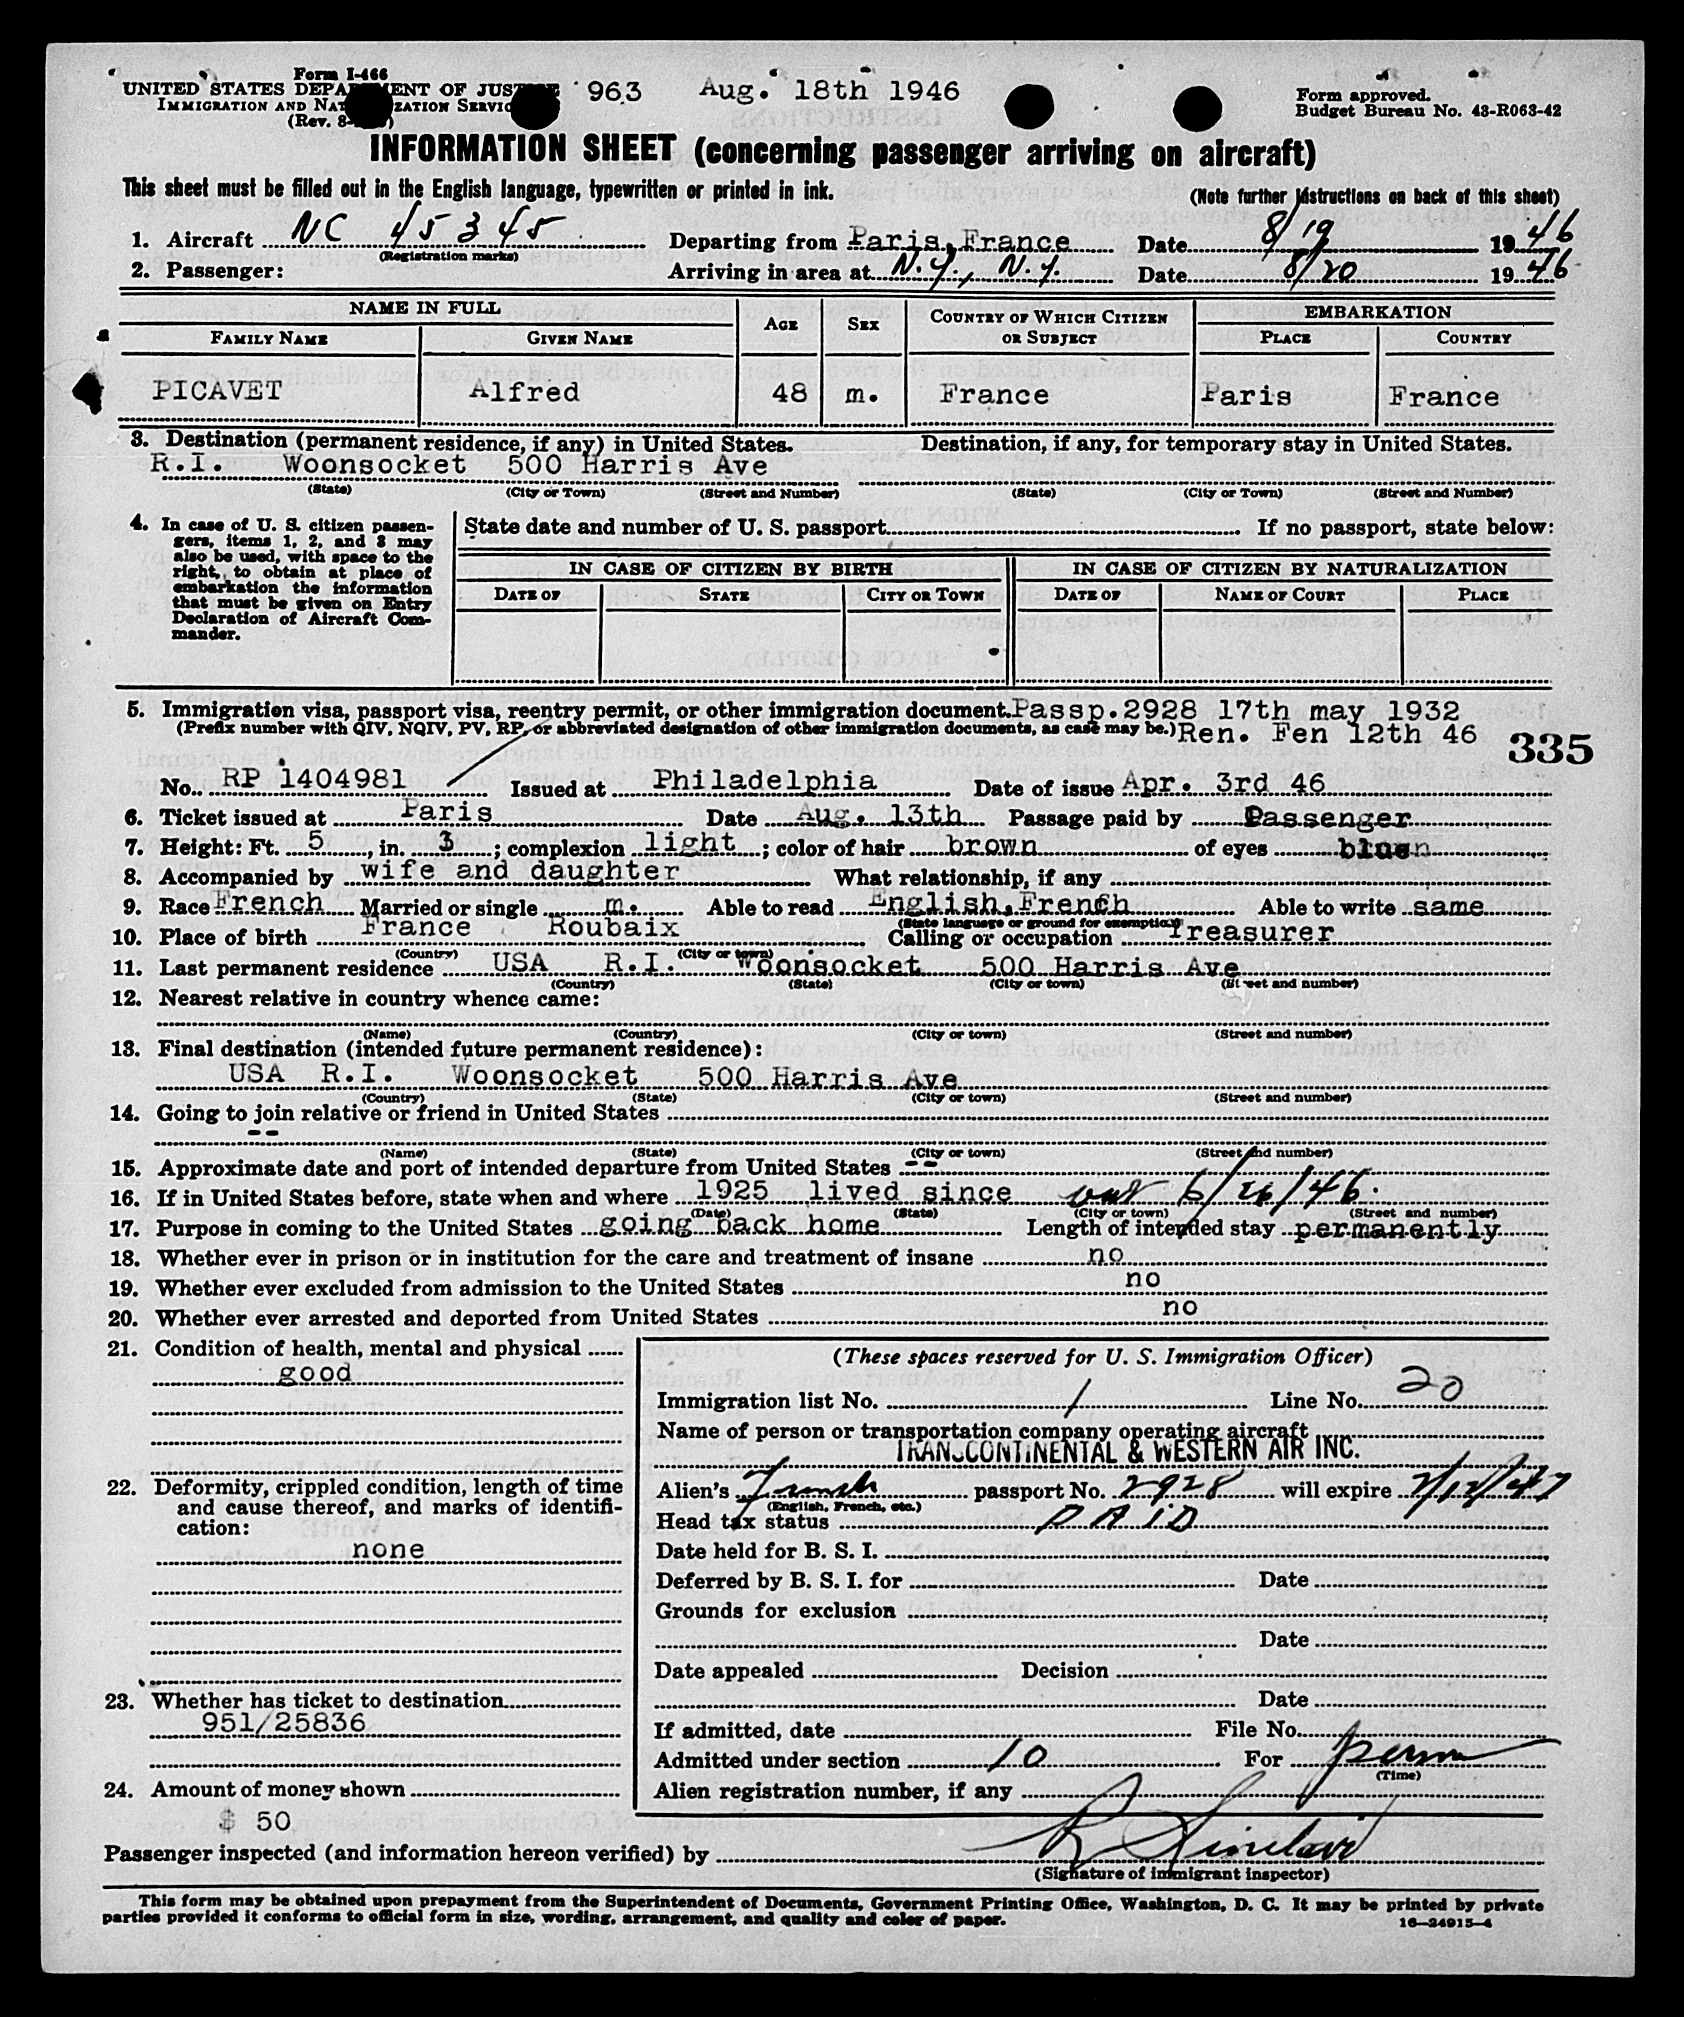 Form I-466
UNITED STATES DEPARTMENT OF JUSTICE 963 Aug. 18th 1946
IMMIGRATION AND NATURALIZATION SERVICE
Form approved.
(Rev. 8- ) Budget Bureau No. 43-R063-42
INFORMATION SHEET (concerning passenger arriving on aircraft)
This sheet must be filled out in the English language, typewritten or printed in ink. (Note further instructions on back of this sheet)
1. Aircraft NC 45345 Departing from Paris, France Date 8/19 1946
(Registration marks)
2. Passenger: Arriving in area at N.Y., N.Y. Date 8/20 1946
NAME IN FULL AGE SEX COUNTRY OF WHICH CITIZEN OR SUBJECT EMBARKATION
FAMILY NAME GIVEN NAME PLACE COUNTRY
PICAVET Alfred 48 m. France Paris France
3. Destination (permanent residence, if any) in United States. Destination, if any, for temporary stay in United States.
R.I. Woonsocket 500 Harris Ave
(State) (City or Town) (Street and Number) (State) (City or Town) (Street and Number)
4. In case of U. S. citizen passen-
gers, items 1, 2, and 3 may
also be used, with space to the
right, to obtain at place of
embarkation the information
that must be given on Entry
Declaration of Aircraft Com-
mander.
State date and number of U. S. passport If no passport, state below:
IN CASE OF CITIZEN BY BIRTH IN CASE OF CITIZEN BY NATURALIZATION
DATE OF STATE CITY OR TOWN DATE OF NAME OF COURT PLACE
5. Immigration visa, passport visa, reentry permit, or other immigration document. Passp.2928 17th may 1932
(Prefix number with QIV, NQIV, PV, RP, or abbreviated designation of other immigration documents, as case may be.) Ren. Fen 12th 46
335
No. RP 1404981 Issued at Philadelphia Date of issue Apr. 3rd 46
6. Ticket issued at Paris Date Aug. 13th Passage paid by Passenger
7. Height: Ft. 5, in. 3; complexion light; color of hair brown of eyes
8. Accompanied by wife and daughter What relationship, if any
9. Race French Married or single m. Able to read English, French Able to write same
(State language or ground for exemption)
10. Place of birth France Roubaix Calling or occupation Treasurer
(Country) (City or town)
11. Last permanent residence USA R.I. Woonsocket 500 Harris Ave
(Country) (State) (City or town) (Street and number)
12. Nearest relative in country whence came:
(Name) (Country) (City or town) (Street and number)
13. Final destination (intended future permanent residence):
USA R.I. Woonsocket 500 Harris Ave
(Country) (State) (City or town) (Street and number)
14. Going to join relative or friend in United States
--
(Name) (State) (City or town) (Street and number)
15. Approximate date and port of intended departure from United States --
16. If in United States before, state when and where 1925 lived since out 6/26/46.
(Date) (State) (City or town) (Street and number)
17. Purpose in coming to the United States going back home Length of intended stay permanently
18. Whether ever in prison or in institution for the care and treatment of insane no
19. Whether ever excluded from admission to the United States no
20. Whether ever arrested and deported from United States no
21. Condition of health, mental and physical
good
22. Deformity, crippled condition, length of time
and cause thereof, and marks of identifi-
cation:
none
23. Whether has ticket to destination
951/25836
24. Amount of money shown
$ 50
(These spaces reserved for U. S. Immigration Officer)
Immigration list No. 1 Line No. 20
Name of person or transportation company operating aircraft
TRANSCONTINENTAL & WESTERN AIR INC.
Alien's French passport No. 2928 will expire 2/12/47
(English, French, etc.)
Head tax status PAID
Date held for B. S. I.
Deferred by B. S. I. for Date
Grounds for exclusion
Date
Date appealed Decision
Date
If admitted, date File No.
Admitted under section 10 For perm
(Time)
Alien registration number, if any
Passenger inspected (and information hereon verified) by R Sinclair
(Signature of immigrant inspector)
This form may be obtained upon prepayment from the Superintendent of Documents, Government Printing Office, Washington, D. C. It may be printed by private
parties provided it conforms to official form in size, wording, arrangement, and quality and color of paper. 16—24915-4